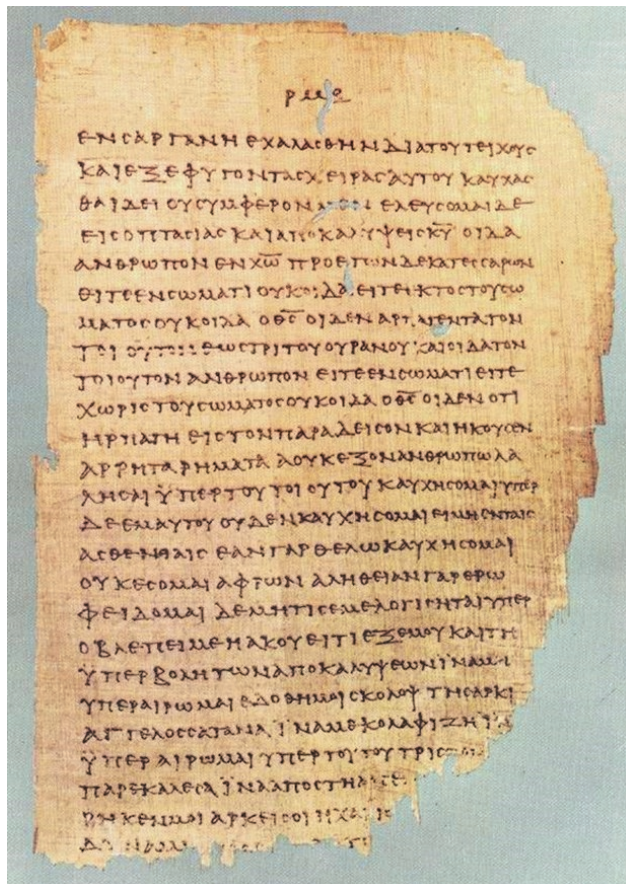 ΡΜΘ
ΕΝ ΣΑΡΓΑΝΗ ΕΧΑΛΑΣΘΗΝ ΔΙΑ ΤΟΥ ΤΕΙΧΟΥΣ
ΚΑΙ ΕΞΕΦΥΓΟΝ ΤΑΣ ΧΕΙΡΑΣ ΑΥΤΟΥ ΚΑΥΧΑΣ
ΘΑΙ ΔΕΙ ΟΥ ΣΥΜΦΕΡΟΝ ΜΕΝ ΕΛΕΥΣΟΜΑΙ ΔΕ
ΕΙΣ ΟΠΤΑΣΙΑΣ ΚΑΙ ΑΠΟΚΑΛΥΨΕΙΣ Κ̅Υ̅ ΟΙΔΑ
ΑΝΘΡΩΠΟΝ ΕΝ Χ̅Ω̅ ΠΡΟ ΕΤΩΝ ΔΕΚΑΤΕΣΣΑΡΩΝ
ΕΙΤΕ ΕΝ ΣΩΜΑΤΙ ΟΥΚ ΟΙΔΑ ΕΙΤΕ ΕΚΤΟΣ ΤΟΥ ΣΩ
ΜΑΤΟΣ ΟΥΚ ΟΙΔΑ Ο Θ̅Σ̅ ΟΙΔΕΝ ΑΡΠΑΓΕΝΤΑ ΤΟΝ
ΤΟΙΟΥΤΟΝ ΕΩΣ ΤΡΙΤΟΥ ΟΥΡΑΝΟΥ ΚΑΙ ΟΙΔΑ ΤΟΝ
ΤΟΙΟΥΤΟΝ ΑΝΘΡΩΠΟΝ ΕΙΤΕ ΕΝ ΣΩΜΑΤΙ ΕΙΤΕ
ΧΩΡΙΣ ΤΟΥ ΣΩΜΑΤΟΣ ΟΥΚ ΟΙΔΑ Ο Θ̅Σ̅ ΟΙΔΕΝ ΟΤΙ
ΗΡΠΑΓΗ ΕΙΣ ΤΟΝ ΠΑΡΑΔΕΙΣΟΝ ΚΑΙ ΗΚΟΥΣΕΝ
ΑΡΡΗΤΑ ΡΗΜΑΤΑ Α ΟΥΚ ΕΞΟΝ ΑΝΘΡΩΠΩ ΛΑ
ΛΗΣΑΙ ΫΠΕΡ ΤΟΥ ΤΟΙΟΥΤΟΥ ΚΑΥΧΗΣΟΜΑΙ ΥΠΕΡ
ΔΕ ΕΜΑΥΤΟΥ ΟΥΔΕΝ ΚΑΥΧΗΣΟΜΑΙ ΕΙ ΜΗ ΕΝ ΤΑΙΣ
ΑΣΘΕΝΕΙΑΙΣ ΕΑΝ ΓΑΡ ΘΕΛΩ ΚΑΥΧΗΣΟΜΑΙ
ΟΥΚ ΕΣΟΜΑΙ ΑΦΡΩΝ ΑΛΗΘΕΙΑΝ ΓΑΡ ΕΡΩ
ΦΕΙΔΟΜΑΙ ΔΕ ΜΗ ΤΙΣ ΕΜΕ ΛΟΓΙΣΗΤΑΙ ΥΠΕΡ
Ο ΒΛΕΠΕΙ ΜΕ Η ΑΚΟΥΕΙ ΤΙ ΕΞ ΕΜΟΥ ΚΑΙ ΤΗ
ΫΠΕΡΒΟΛΗ ΤΩΝ ΑΠΟΚΑΛΥΨΕΩΝ ΪΝΑ ΜΗ
ΥΠΕΡΑΙΡΩΜΑΙ ΕΔΟΘΗ ΜΟΙ ΣΚΟΛΟΨ ΤΗ ΣΑΡΚΙ
ΑΓΓΕΛΟΣ ΣΑΤΑΝΑ ΪΝΑ ΜΕ ΚΟΛΑΦΙΖΗ
ΫΠΕΡΑΙΡΩΜΑΙ ΥΠΕΡ ΤΟΥΤΟΥ ΤΡΙΣ
ΠΑΡΕΚΑΛΕΣΑ ΪΝΑ ΑΠΟΣΤΗ
ΡΗΚΕΝ ΜΟΙ ΑΡΚΕΙ ΣΟΙ Η ΧΑΡΙΣ